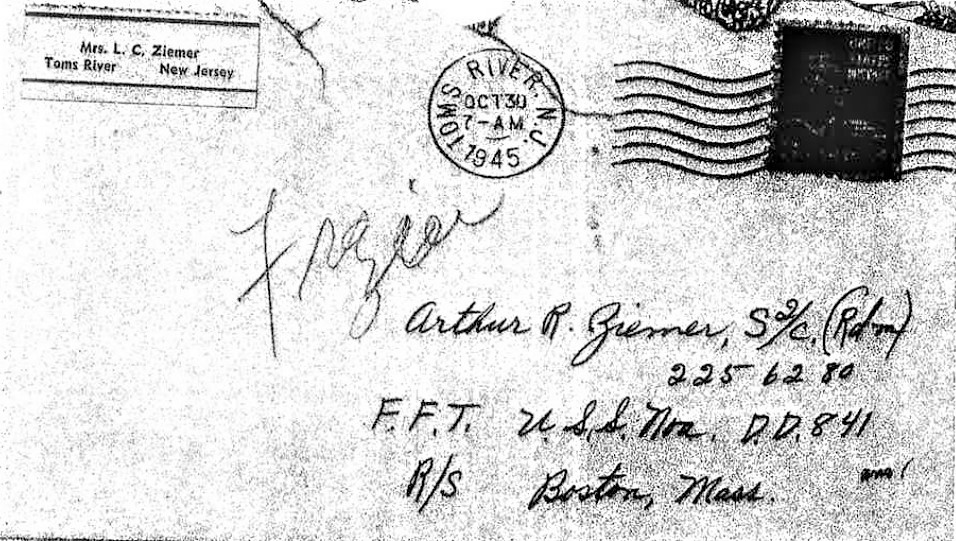 Mrs. L. C. Ziemer
Toms River New Jersey
TOMS RIVER, N.J.
OCT 30
7-AM
1945
Frazier
Arthur R. Ziemer, S 2/c, (Rdm)
225 62 80
F.F.T. U.S.S. Noa. D.D. 841
R/S Boston, Mass.